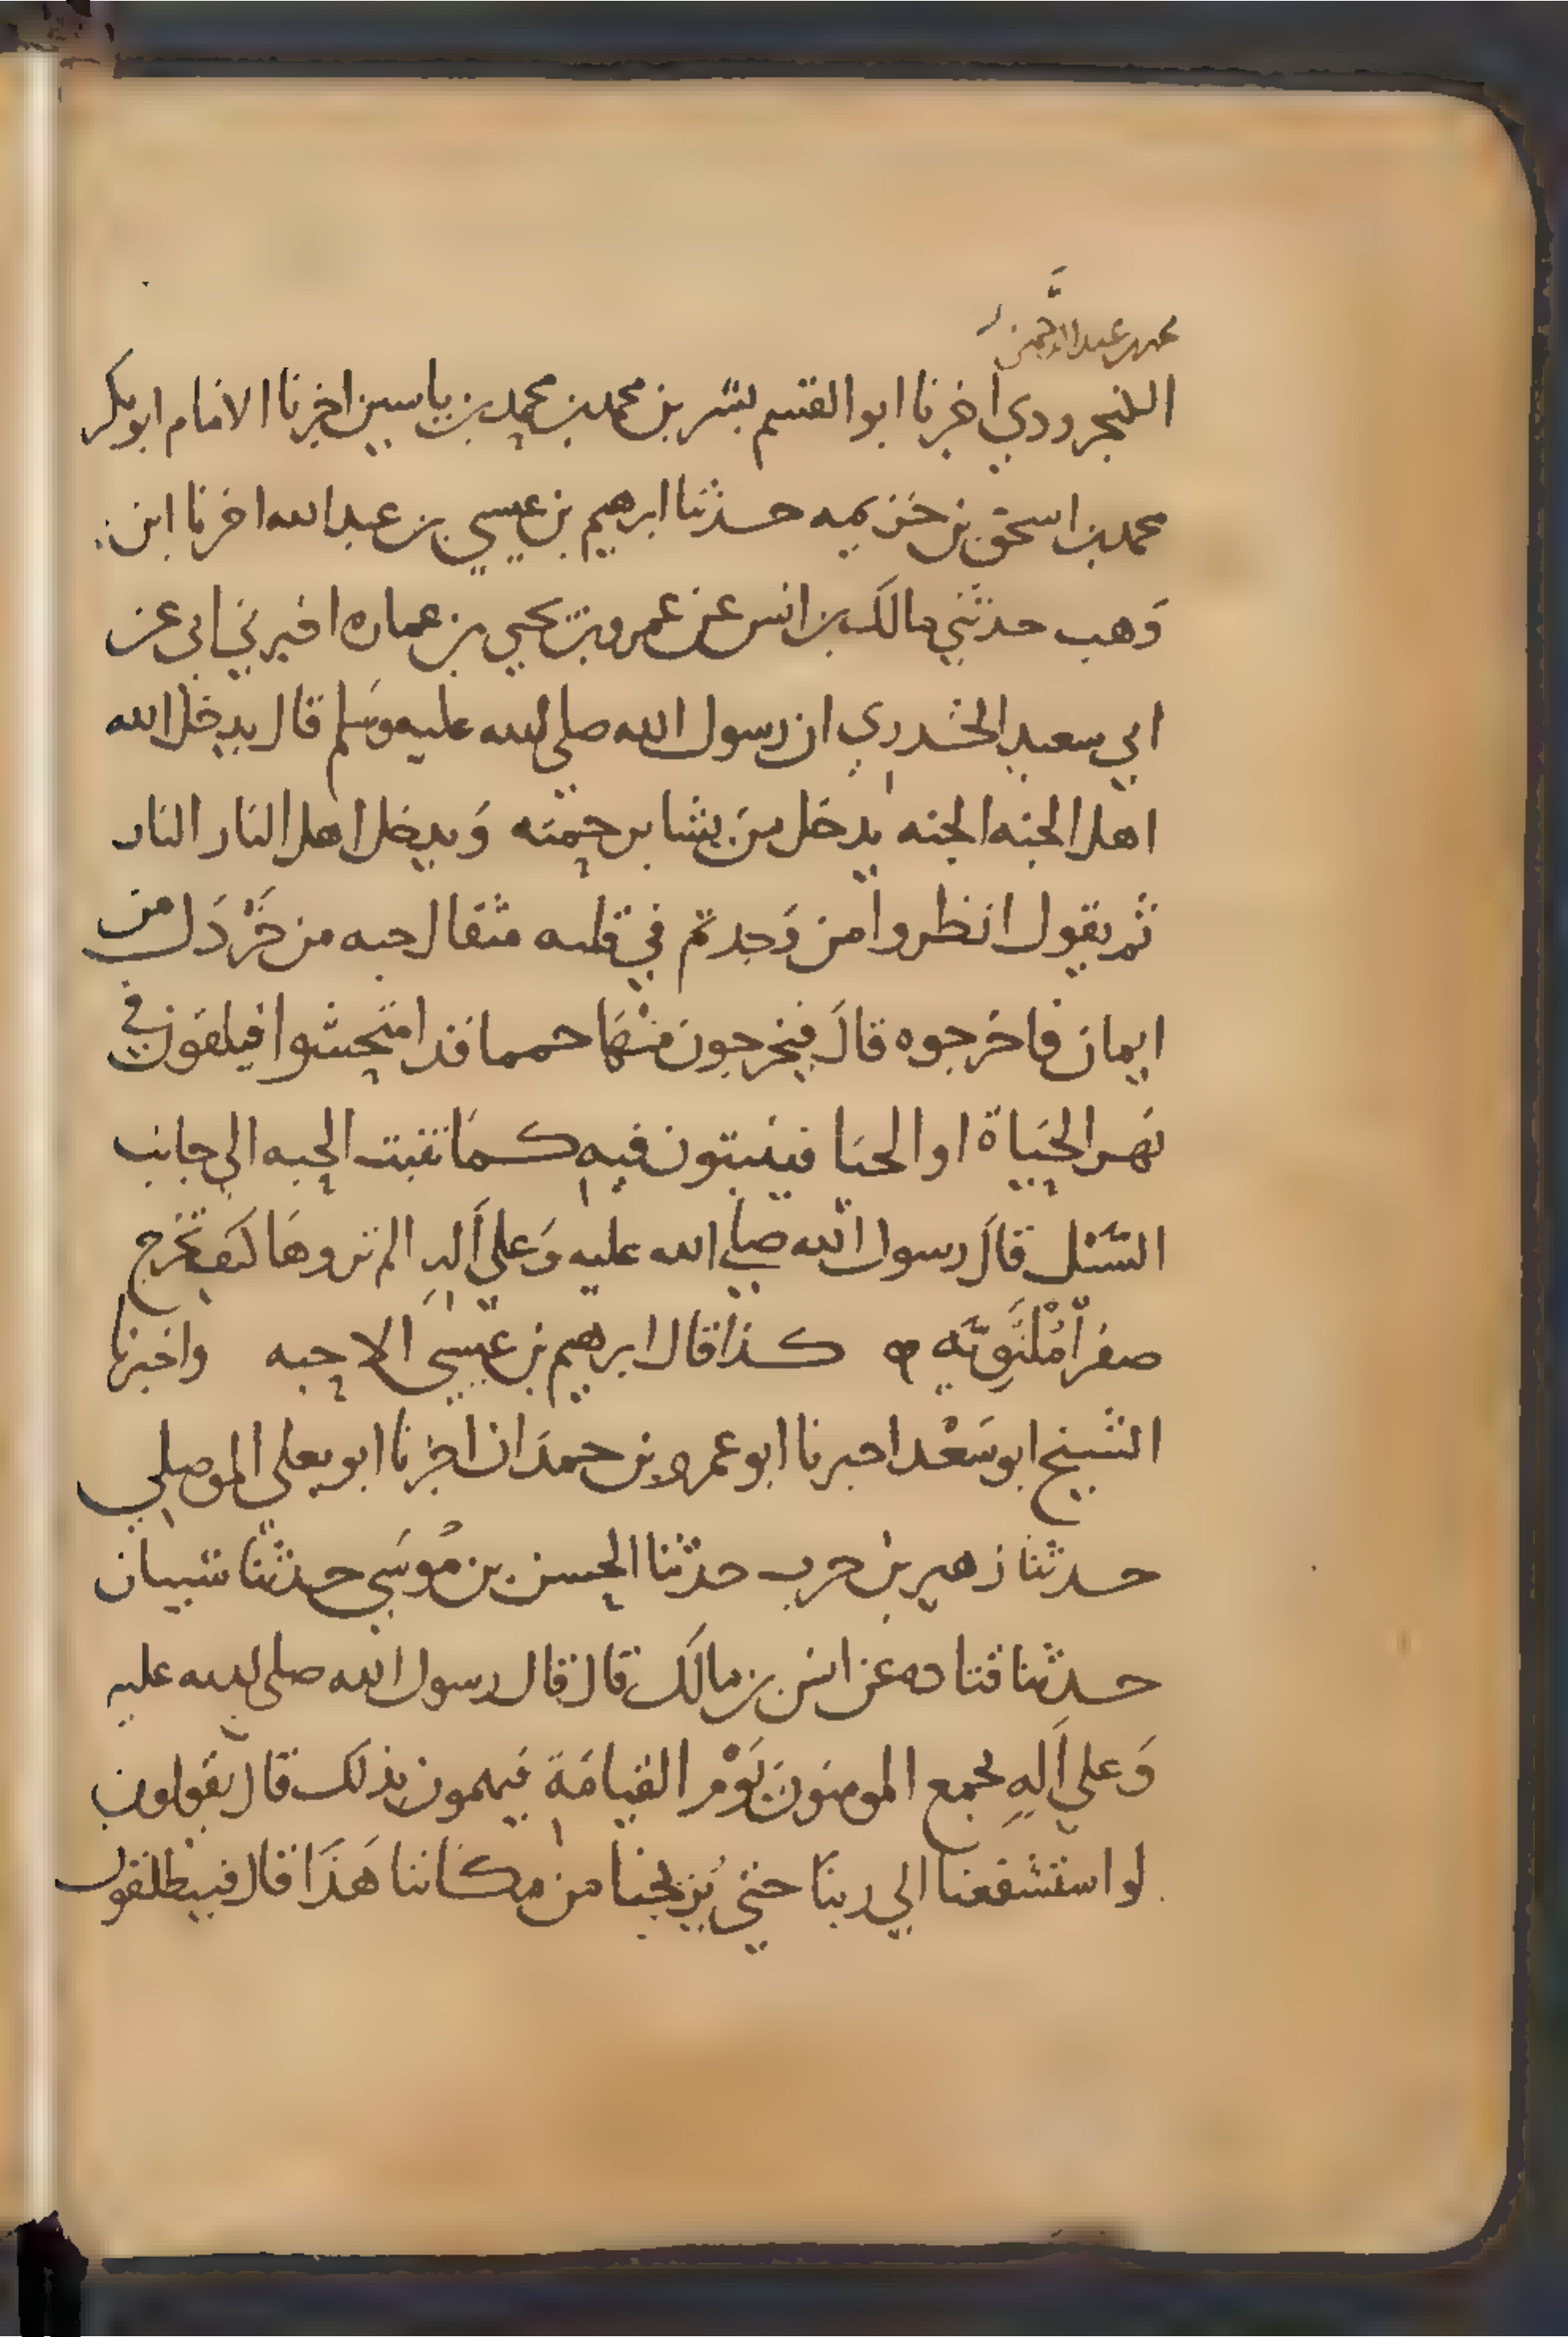 محمد بن عبد الرحمن
الكنجرودي اخبرنا ابو القسم بشر بن محمد بن محمد بن ياسين اخبرنا الامام ابو بكر
محمد بن اسحق بن خزيمه حدثنا ابرهيم بن عيسي بن عبد الله اخبرنا ابن
وَهب حدثني مالك بن انس عن عمرو بن يحيي بن عماره اخبرني ابي عن
ابي سعيد الخدري ان رسول الله صلي الله عليه وسَلم قال يدخل الله
اهل الجنه الجنه يدخل من يشا برحمته وَيدخل اهل النار النار
ثم يقول انظروا من وَجدتم في قلبه مثقال حبه من خَرْدَل من
ايمان فاخرجوه قالَ فيخرجون منْهَا حمما قد امتحشوا فيلقون في
نهر الحيَاة او الحيَا فينبتون فيه كمَا تنبت الحبه الي جانب
السَّيْل قالَ رسول الله صلي الله عليه وَعلي اَله الم تروهَا كيَف تخرج
صفرآ مُلْتَوِيَّه كذا قال ابرهيم بن عيسَي الا حبه واخبرنا
الشيخ ابو سَعْد اخبرنا ابو عمرو بن حمدَان اخبرنا ابو يعلي الموصلي
حدثنا زهير بن حرب حدثنا الحسن بن مُوسَي حدثنا شيبان
حدثنا قتاده عن انس بن مالك قال قال رسول الله صلي الله عليه
وَعلي اَلهِ يجمع المومنونَ يَوْم القيامَة فيهمون بذلك قال يقولون
لو استشفعنا الي ربنَا حتي يُزيحنا من مكاننا هَذَا قال فينطلقون